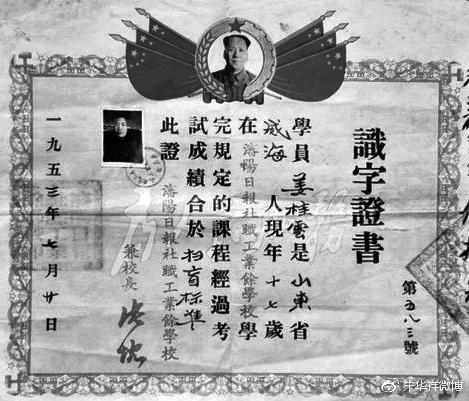 識字證書
第五八三號
學員姜桂雲是山東省
威海人現年十七歲
在瀋陽日報社職工業餘學校學
完規定的課程經過考
試成績合於扫盲标準
此證
瀋陽日報社職工業餘學校
兼校長
一九五三年七月廿日
朱华祥微博